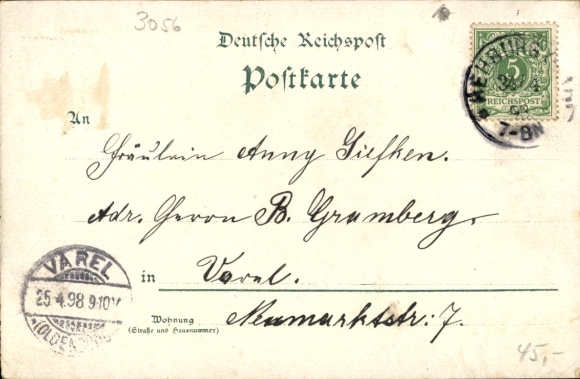 3056
Deutsche Reichspost
Postkarte
5
REICHSPOST
7-8N
An
Fräulein Anny Siefken.
Adr. Herrn B. Gramberg.
in Varel.
Wohnung
(Straße und Hausnummer)
Neumarktstr: 7.
VAREL
25.4.98 9-10V
(OLDENBURG)
45,-